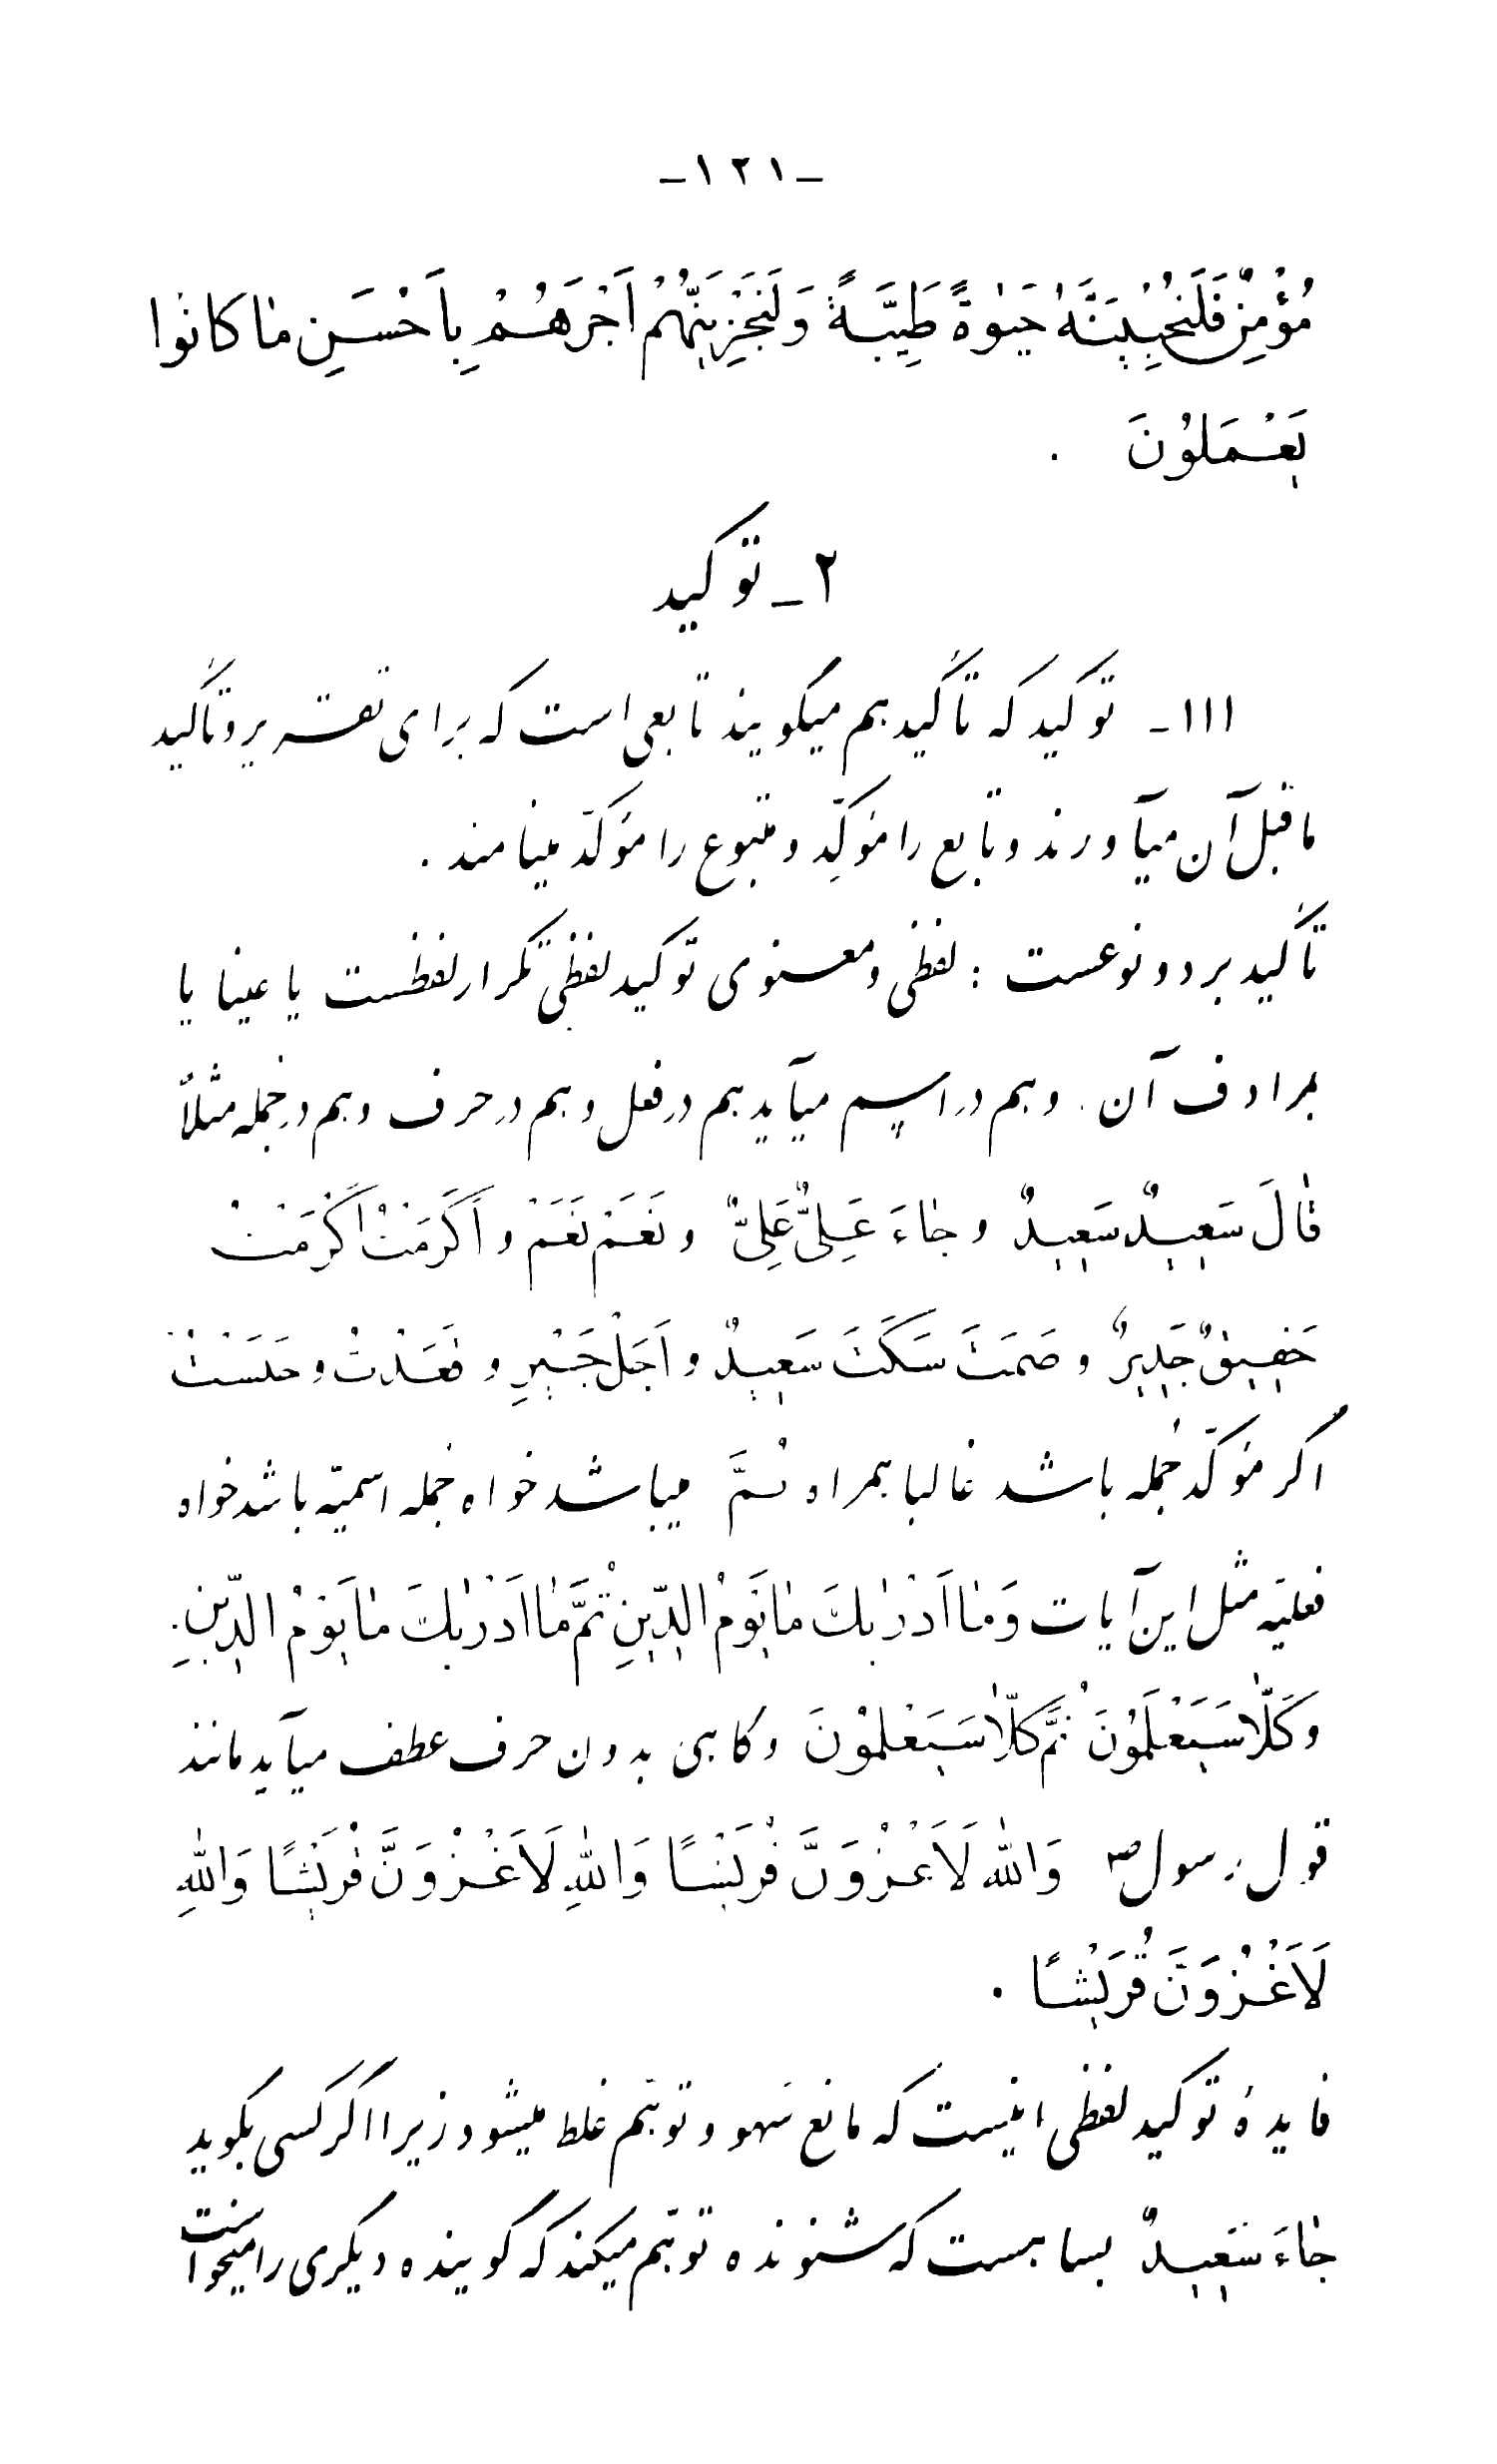 -۱۲۱-
مُؤْمِنٌ فَلَنُحْیِیَنَّهُ حَیٰوةً طَیِّبَةً وَلَنَجْزِیَنَّهُمْ اَجْرَهُمْ بِاَحْسَنِ مٰا کٰانُوا
یَعْمَلُوْنَ .
۲ـ توکید
۱۱۱ـ توکید که تأکید هم میگویند تابعی است که برای تقریر و تأکید
ماقبل آن میآورند و تابع را مؤکِّد و متبوع را مؤکَّد مینامند.
تأکید بر دو نوعست : لفظی و معنوی توکید لفظی تکرار لفظست یا عینا یا
بمرادف آن. و هم در اسم میآید هم در فعل و هم در حرف و هم در جمله مثلاً
قٰالَ سَعیدٌ سَعیدٌ و جٰاءَ عَلِیٌّ عَلِیٌّ و نَعَمْ نَعَمْ و اَکْرَمَتْ اَکْرَمَتْ
حَقیقٌ جَدیرٌ و صَمَتَ سَکَتَ سَعیدٌ و اَجَلْ جَیْرِ و قَعَدْتُ و جلَسْتُ
اگر مؤکَّد جُمله باشد غالبا همراه ثُمَّ میباشد خواه جمله اسمیّه باشد خواه
فعلیّه مثل این آیات وَمٰا اَدْرٰیکَ مٰا یَوْمُ الدّینِ ثُمَّ مٰا اَدْرٰیکَ مٰا یَوْمُ الدّینِ.
و کَلّٰا سَیَعْلَمُوْنَ ثُمَّ کَلّٰا سَیَعْلَمُوْنَ و گاهی بدون حرف عطف میآید مانند
قول رسول ص وَاللّٰهِ لَاَغْزُوَنَّ قُرَیْشًا وَاللّٰهِ لَاَغْزُوَنَّ قُرَیْشًا وَاللّٰهِ
لَاَغْزُوَنَّ قُرَیْشًا .
فایدهٔ توکید لفظی اینست که مانع سَهو و توهّم غلط میشود زیرا اگر کسی بگوید
جٰاءَ سَعیدٌ بسا هست که شنونده توهّم میکند که گوینده دیگری را میخواست